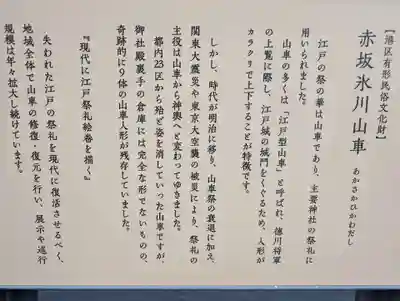 【港区有形民俗文化財】
赤坂氷川山車 あかさかひかわだし
江戸の祭の華は山車であり、主要神社の祭礼に
用いられました。
山車の多くは「江戸型山車」と呼ばれ、徳川将軍
の上覧に際し、江戸城の城門をくぐるため、人形が
カラクリで上下することが特徴です。
しかし、時代が明治に移り、山車祭の衰退に加え、
関東大震災や東京大空襲の被災により、祭礼の
主役は山車から神輿へと変わってゆきました。
都内23区から殆ど姿を消していった山車ですが、
御社殿裏手の倉庫には完全な形でないものの、
奇跡的に9体の山車人形が残存していました。
『現代に江戸祭礼絵巻を描く』
失われた江戸の祭礼を現代に復活させるべく、
地域全体で山車の修復・復元を行い、展示や巡行
規模は年々拡大し続けています。